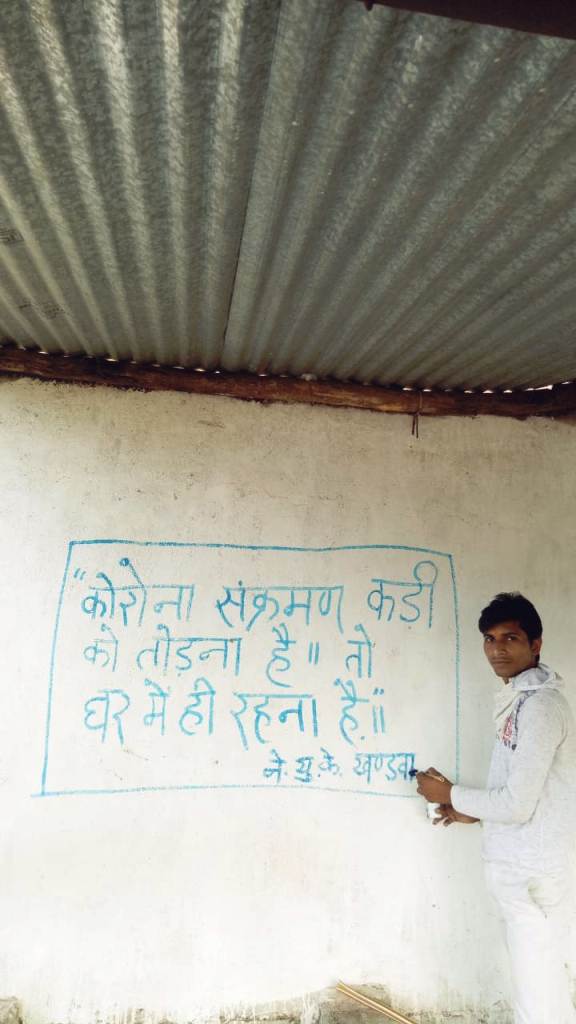 "कोरोना संक्रमण कड़ी
को तोड़ना है॥ तो
घर में ही रहना है॥"
ने. यु. के. खण्डवा